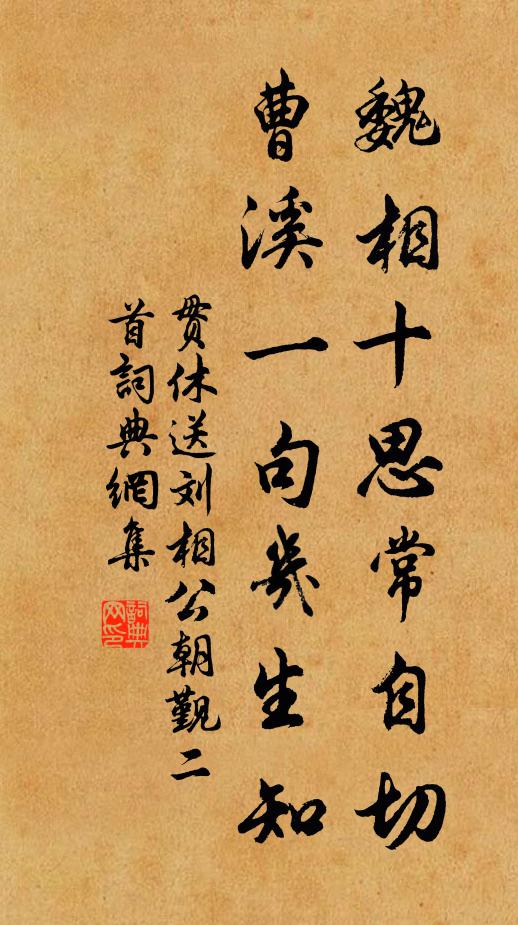 魏相十思常自切
曹溪一句幾生知
贯休送刘相公朝觐二
首詞典網集
詞典
网印